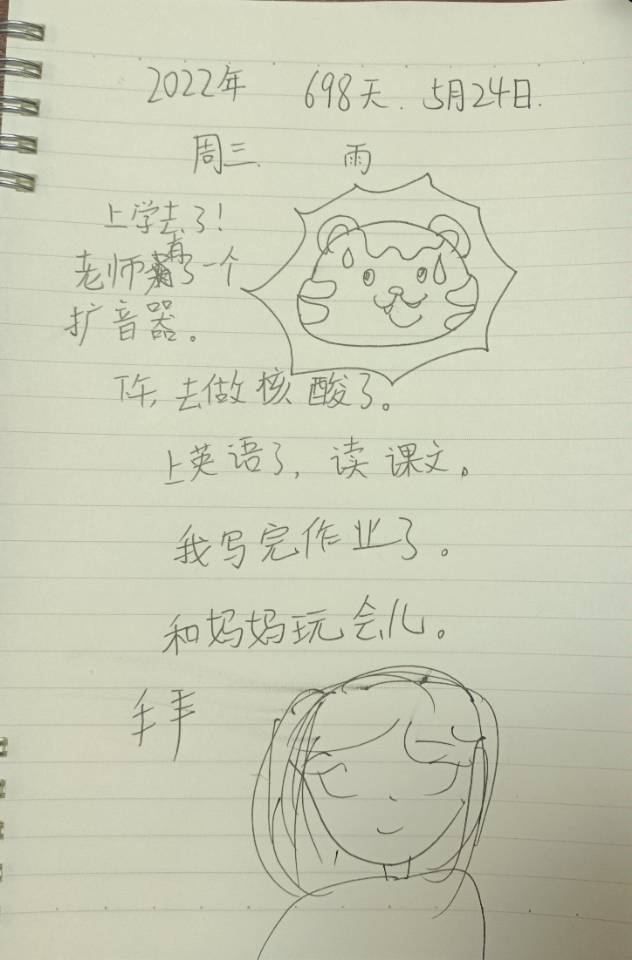 2022年 698天. 5月24日.
周三. 雨
上学去了!
老师有了一个
扩音器。
下午,去做核酸了。
上英语了,读课文。
我写完作业了。
和妈妈玩会儿。